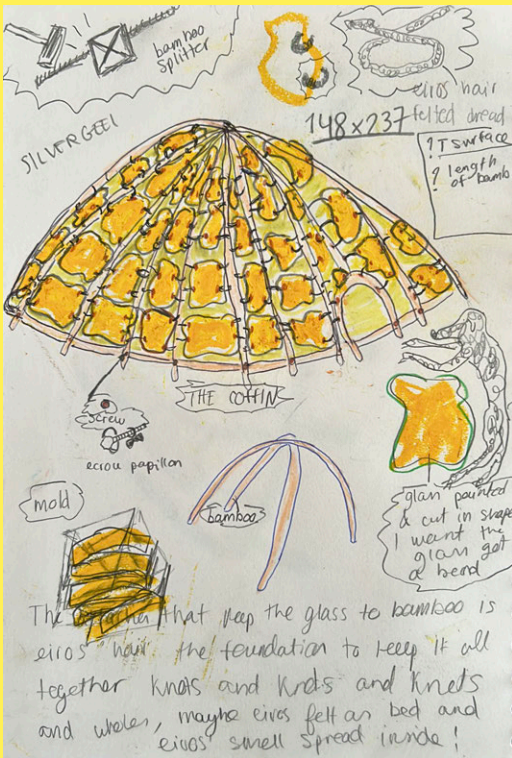 bamboo
splitter
eiros hair
felted dread
148x237
SILVERGEEL
? T surface
? length
of bamb
THE COFFIN
screw
ecrou papillon
mold
bamboo
glass painted
& cut in shape
I want the
glass get
a bend
The that keep the glass to bamboo is
eiros' hair the foundation to keep it all
together knots and knots and knots
and whales, maybe eiros felt as bed and
eiros' smell spread inside!